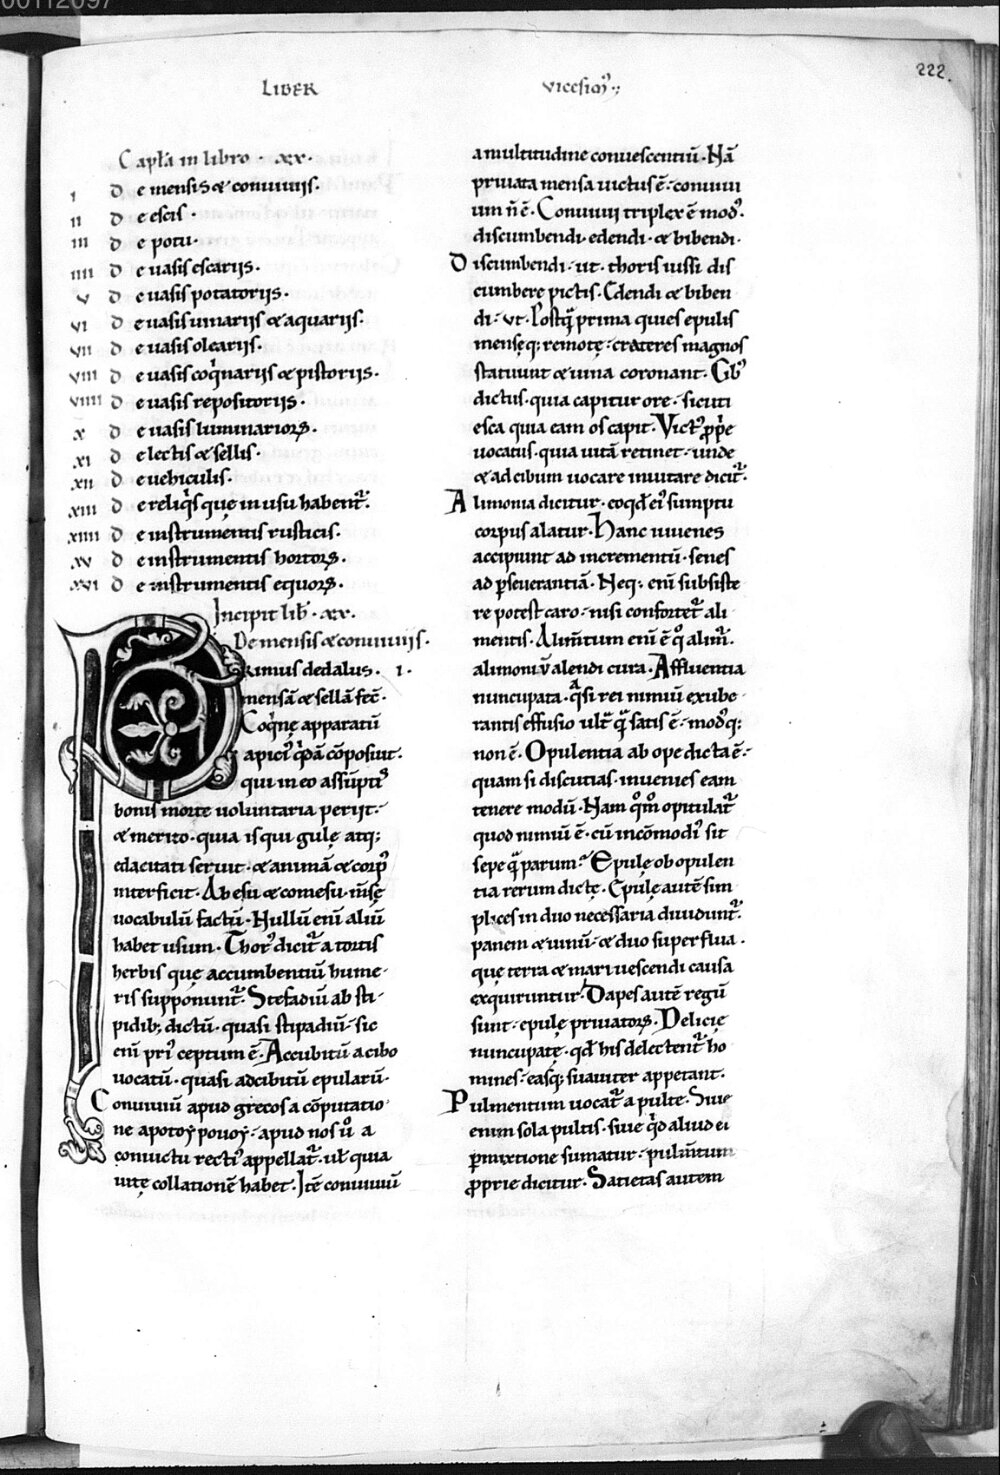 00112097
222.
LIBER VICESIM᾽
Capl̃a in libro · xx·
I De mensis & conuiuijs.
II De escis.
III De potu.
IIII De uasis escarijs.
V De uasis potatorijs.
VI De uasis uinarijs & aquarijs.
VII De uasis olearijs.
VIII De uasis coq̓narijs & pistorijs.
VIIII De uasis repositorijs.
X De uasis luminarioꝝ.
XI De lectis & sellis.
XII De uehiculis.
XIII De reliq̓s quę in usu habent̃.
XIIII De instrumentis rusticis.
XV De instrumentis hortoꝝ.
XVI De instrumentis equoꝝ.
Incipit lib̃ · xx·
De mensis & conuiuijs.
PRimus dedalus · I ·
mensã & sellã fec̃.
Coq̓nę apparatũ
apici᾽ q̓dã cõposuit.
qui in eo assũpti᾽
bonis morte uoluntaria perijt.
& merito · quia is qui gulę atq;
edacitati seruit · & animã & corp᾽
interficit · Ab esu & comesu · m̃sę
uocabulũ factũ · Nullũ enĩ aliũ
habet usum · Thor᾽ dicit̃ a tortis
herbis quę accumbentiũ hume
ris supponunt̃ · Stefadiũ ab sti
pidib; dictũ · quasi stipadiũ · sic
enĩ pri᾽ ceptum ẽ · Accubitũ a cibo
uocatũ · quasi adcibitũ epularũ.
Conuiuiũ apud grecos a cõputatio
ne apotoy povoy · apud nos u̾ a
conuictu recti᾽ appellat̃ · ul̃ quia
uitę collationẽ habet · Itẽ conuiuiũ
a multitudine conuescentiũ · Nã
priuata mensa uictus ẽ · conuiui
um ñ ẽ · Conuiuij triplex ẽ mod᾽.
discumbendi · edendi · & bibendi.
Discumbendi · ut · thoris iussi dis
cumbere pictis · Edendi & biben
di · ut · Postq̃ prima quies epulis
mensęq; remotę · crateres magnos
statuunt & uina coronant · Cib᾽
dictus · quia capitur ore · sicuti
esca quia eam os capit · Vict᾽ ꝓp̃e
uocatus · quia uitã retinet · unde
& ad cibum uocare inuitare dicit̃.
Alimonia dicitur · eo qđ ei᾽ sumptu
corpus alatur · Hanc iuuenes
accipiunt ad incrementũ · senes
ad ꝑseuerantiã · Neq; enĩ subsiste
re potest caro · nisi confortet̃ ali
mentis · Alim̃tum enĩ ẽ q̊ alim̃.
alimoniũ alendi cura · Affluentia
nuncupata · q̓si rei nimiũ exube
rantis effusio ult̃ q̃ satis ẽ · mod᾽q;
non ẽ · Opulentia ab ope dicta ẽ.
quam si discutias · inuenies eam
tenere modũ · Nam q̊m̊ opitulat̃
quod nimiũ ẽ · cũ incõmodi᾽ sit
sepe q̃ parum? Epulę ob opulen
tia rerum dictę · Epulę autẽ sim
plices in duo necessaria diuidunt̃.
panem & uinũ · & duo superflua.
quę terra & mari uescendi causa
exquiruntur · Dapes autẽ regũ
sunt · epulę priuatoꝝ · Delicię
nuncupatę · qđ his delectent̃ ho
mines · easq; suauiter appetant.
Pulmentum uocat̃ a pulte · Siue
enim sola pultis · siue q̓d aliud ei
ꝑmixtione sumatur · pulm̃tum
ꝓprie dicitur · Satietas autem